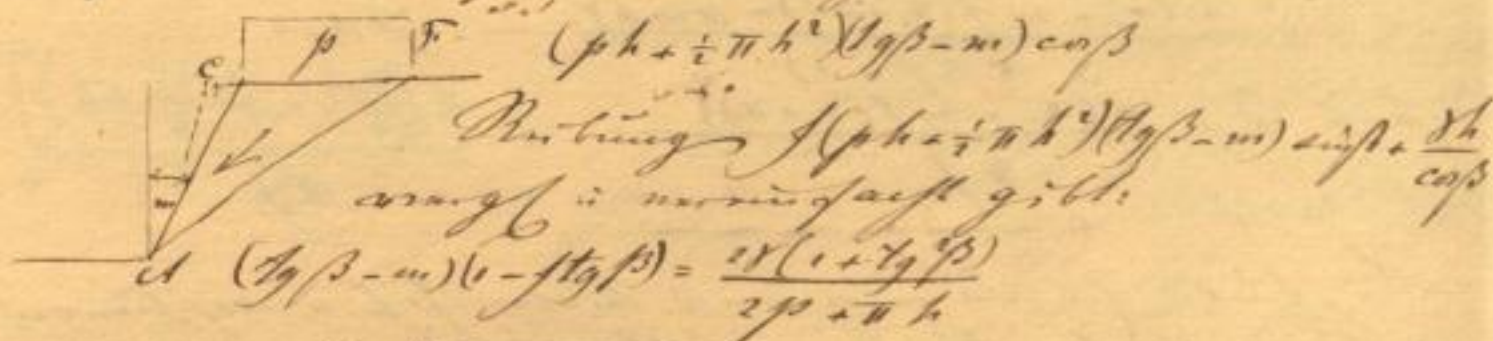 p F C
(ph + ½ π h²)(tgβ − m) cosβ
Reibung f(ph + ½ π h²)(tgβ − m) sinβ + γh/cosβ
m
vereinfacht gibt:
A (tgβ − m)(1 − f tgβ) = 2γ(1 + tg²β)/(2p + π h)